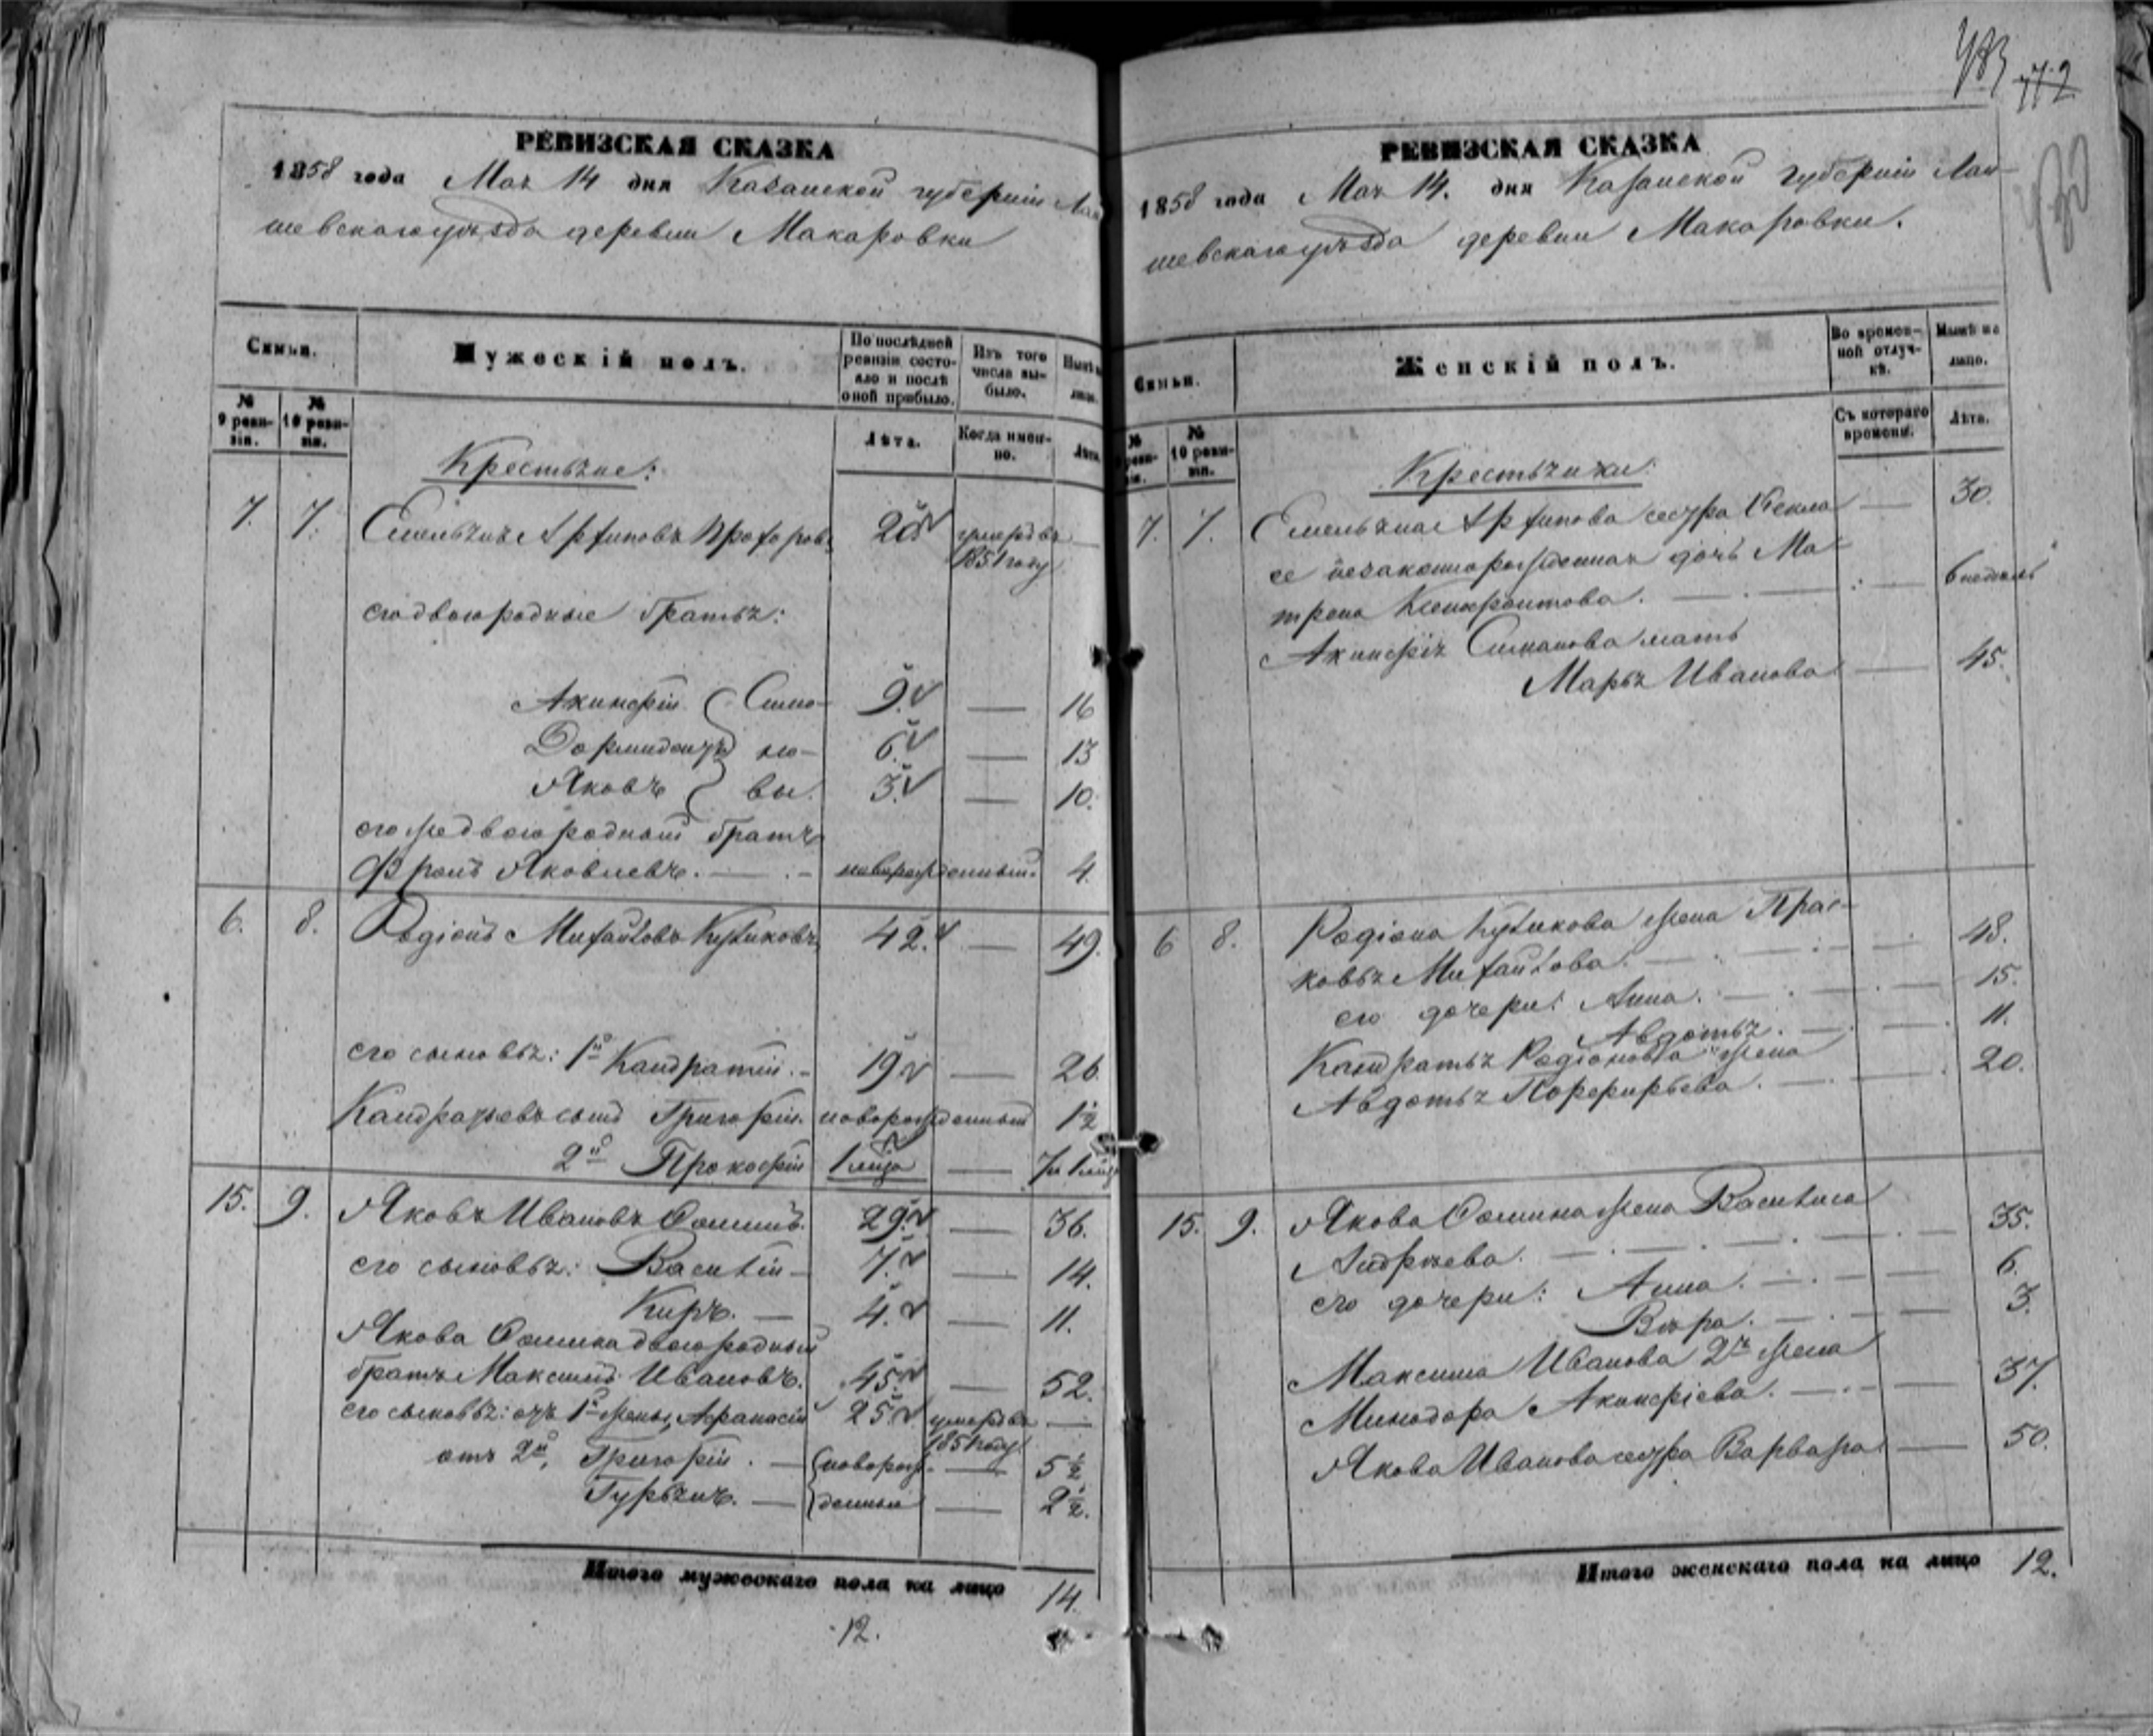 РЕВИЗСКАЯ СКАЗКА
1858 года Мая 14 дня Казанской губерніи Лаи
шевского уѣзда деревни Макаровки
Семьи.
Мужескій полъ.
По послѣдней ревизіи состояло и послѣ оной прибыло.
Изъ того числа выбыло.
№ 9 ревизіи.
№ 10 ревизіи.
Лѣта.
Когда именно.
Лѣта.
Крестьяне:
7. 7. Емельянъ Архиповъ 20 умеръ въ
1851 году
его двоюродные братья:
Акинфій Симо- 9. — 16
Дормидонтъ но- 6. — 13
Яковъ вы. 3. — 10.
его же двоюродный братъ
Фролъ Яковлевъ. — новорожденный. 4.
6. 8. Родіонъ Михайловъ Куликовъ 42. — 49.
его сыновья: 1й Кандратій. 19 — 26
Кандратьевъ сынъ Григорій. новорожденный 1½
2й Прокофій 1 мца — 7 и 1 мца
15. 9. Яковъ Ивановъ Фоминъ. 29. — 36.
его сыновья: Василій — 7. — 14.
Киръ. — 4. — 11.
Якова Фомина двоюродный
братъ Максимъ Ивановъ. 45. — 52.
его сыновья: отъ 1й жены, Афанасій 25. умеръ въ —
1851 году
отъ 2й, Григорій. — новорож- — 5½
Гурьянъ. — денные — 2½.
Итого мужескаго пола на лицо 14.
12.
483 772
РЕВИЗСКАЯ СКАЗКА
1858 года Мая 14. дня Казанской губерніи Лаи-
шевскаго уѣзда деревни Макаровки.
Семьи.
Женскій полъ.
Во временной отлучкѣ.
Нынѣ на лицо.
№ 10 ревизіи.
Съ котораго времени.
Лѣта.
Крестьянки:
7. 7. Емельяна Архипова сестра Фекла — 30.
ее незаконнорожденная дочь Ма-
трена — 6 недель
Акинфія Симанова мать
Марья Иванова — 45.
6 8. Родіона Куликова жена Прас-
ковья Михайлова. — 48.
его дочери: Анна. — 15.
Авдотья. — 11.
Кандратья Родіонова жена
Авдотья Порфирьева. — 20.
15. 9. Якова Фомина жена Василиса
Андреева. — 35.
его дочери: Анна. — 6.
Вѣра. — 3.
Максима Иванова 2я жена
Минодора Акинфіева. — 37.
Якова Иванова сестра Варвара — 50.
Итого женскаго пола на лицо 12.